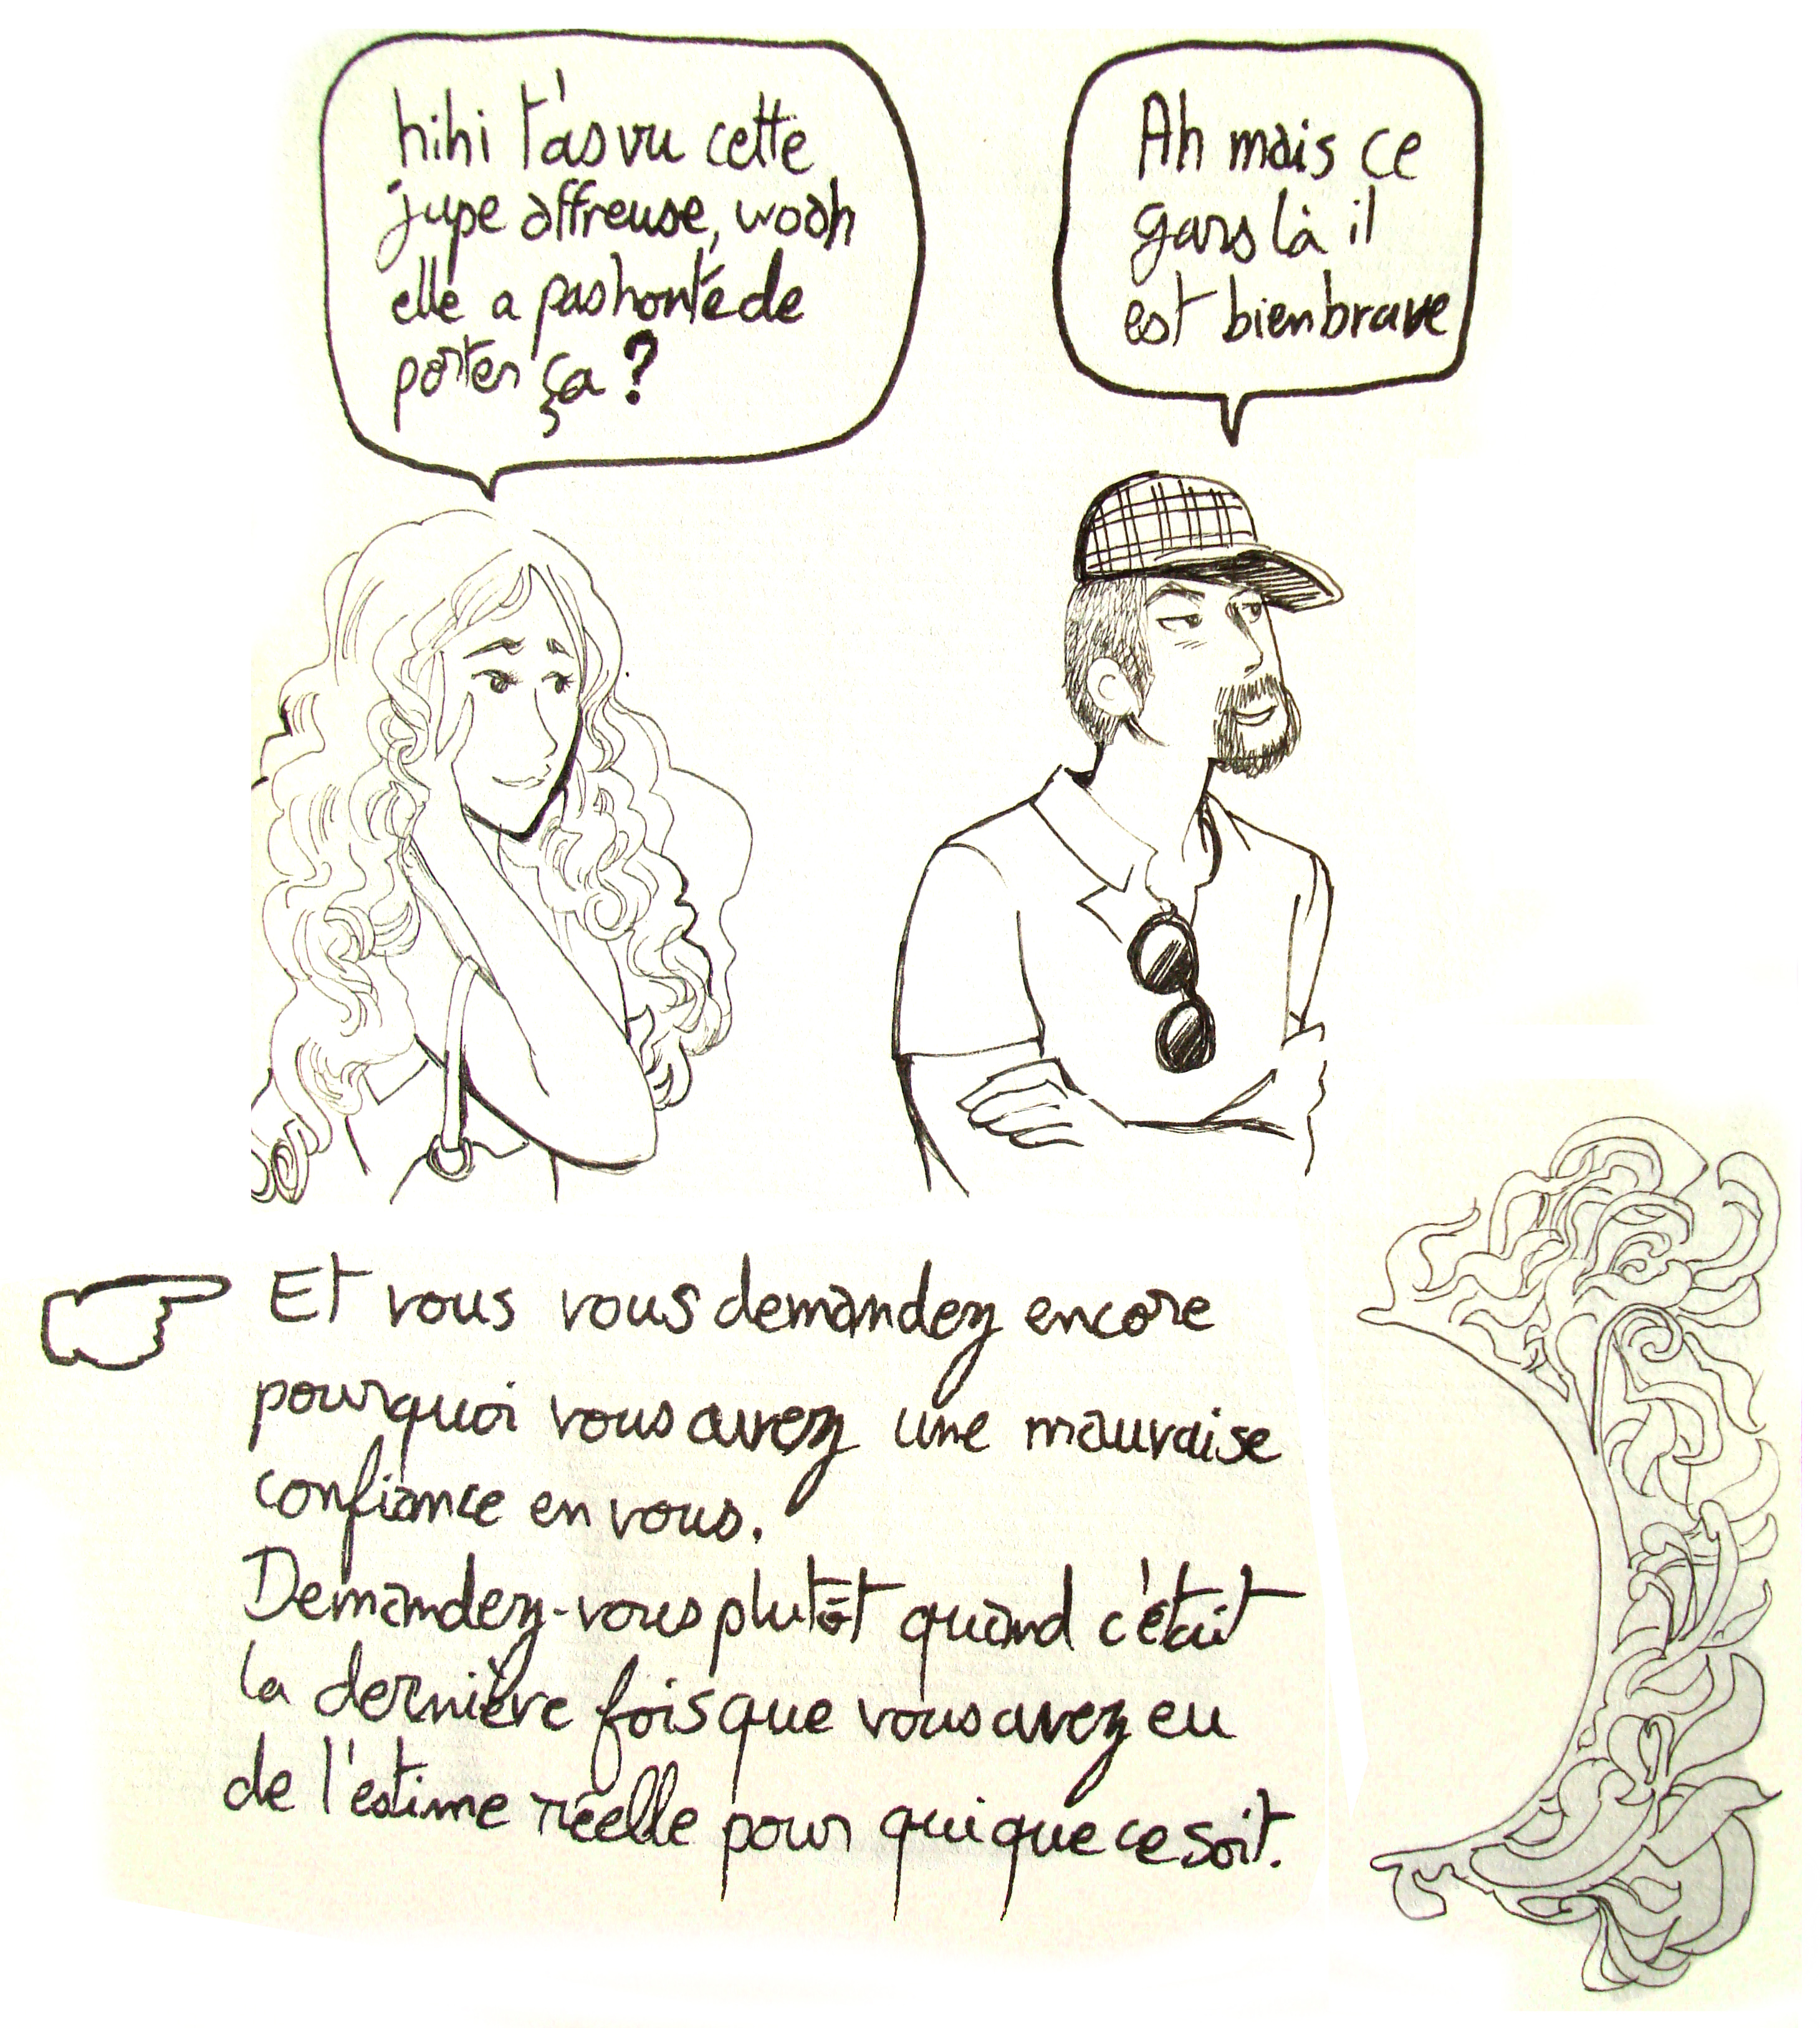 hihi t'as vu cette
jupe affreuse, woah
elle a pas honte de
porter ça ?
Ah mais ce
gars là il
est bien brave
Et vous vous demandez encore
pourquoi vous avez une mauvaise
confiance en vous.
Demandez-vous plutôt quand c'était
la dernière fois que vous avez eu
de l'estime réelle pour qui que ce soit.